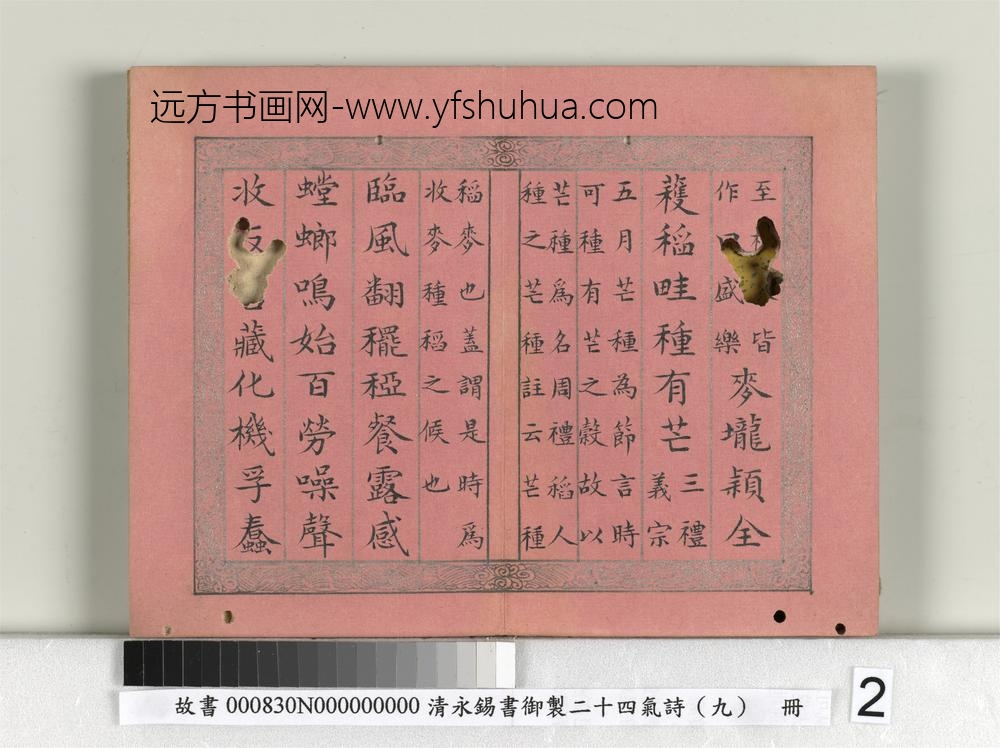 远方书画网-www.yfshuhua.com
至皆
作盛樂
麥壠穎全
穫稻畦種有芒
三禮
義宗
五月芒種為節言時
可種有芒之穀故以
芒種爲名周禮稻人
種之芒種註云芒種
稻麥也蓋謂是時爲
收麥種稻之候也
臨風翻䆉稏餐露感
螳螂鳴始百勞噪聲
收藏化機孚蠢
故書 000830N000000000 清永錫書御製二十四氣詩（九） 冊
2